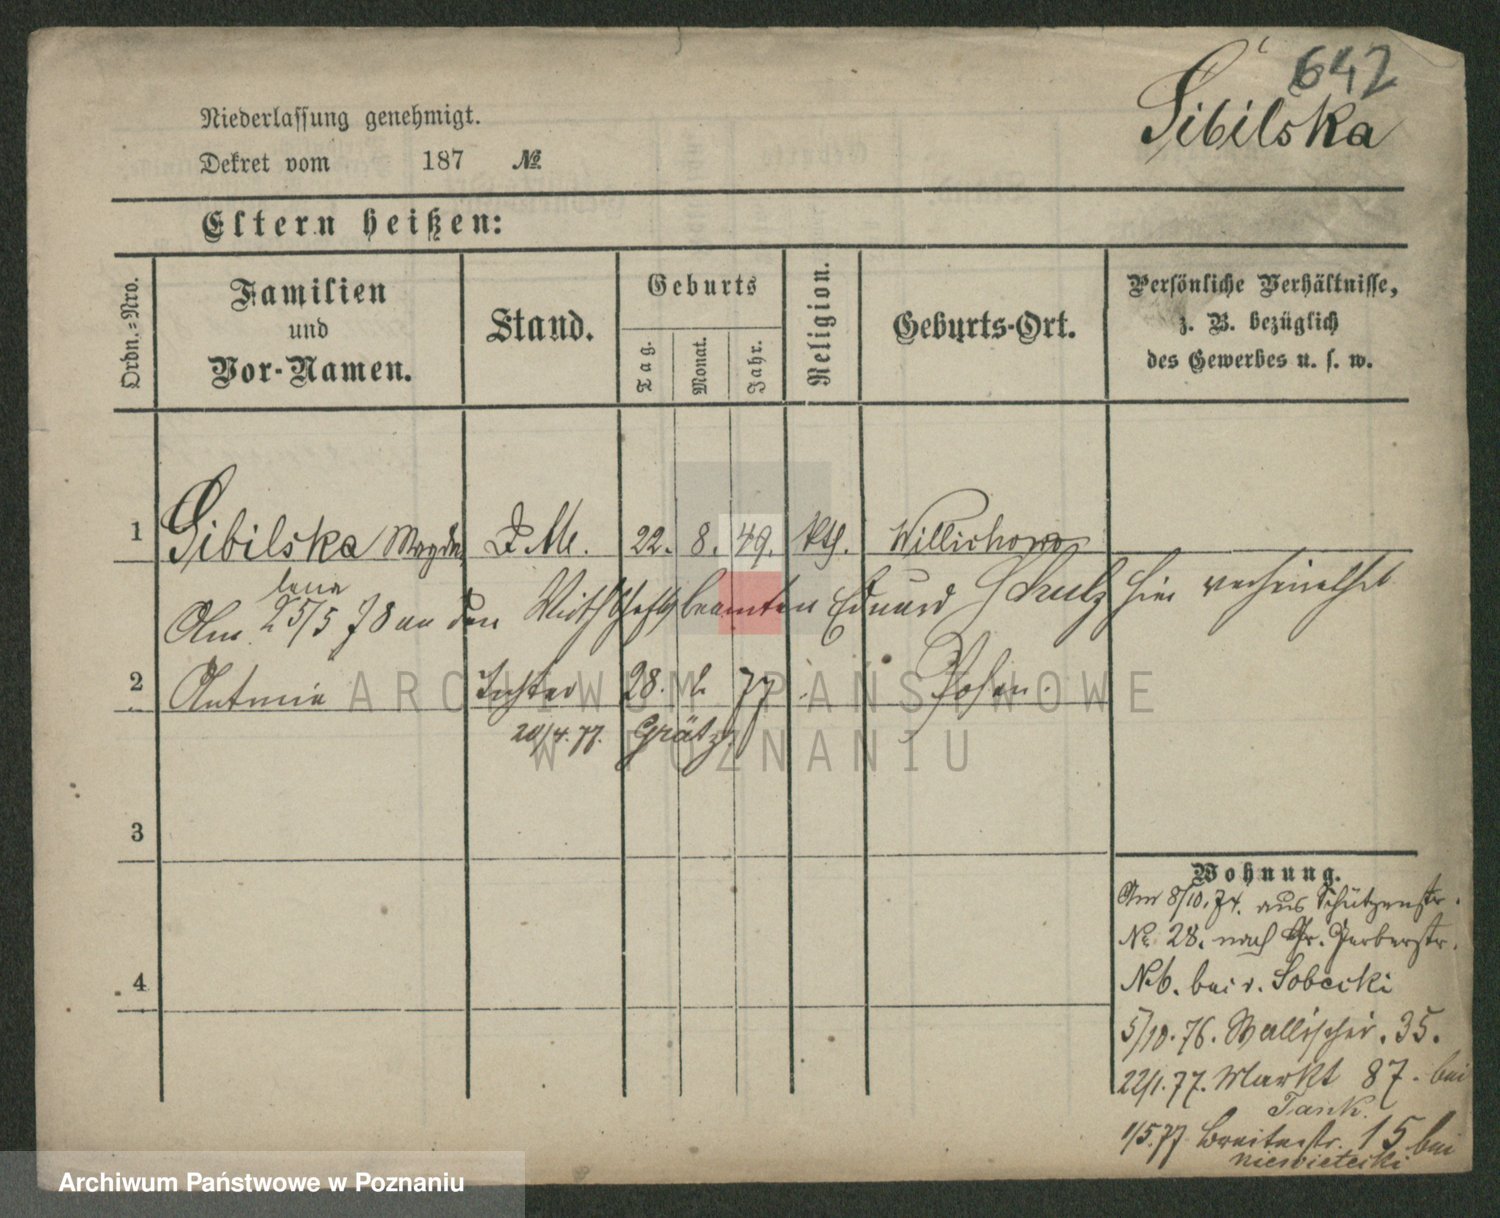 642
Sibilska
Niederlassung genehmigt.
Dekret vom 187 №
Eltern heißen:
Ordn.-Nro.
Familien
und
Vor-Namen.
Stand.
Geburts
Tag.
Monat.
Jahr.
Religion.
Geburts-Ort.
Persönliche Verhältnisse,
z. B. bezüglich
des Gewerbes u. s. w.
1 Sibilska Magda D. M. 22. 8. 49. kth.
lena
25/5 78 an den Wirthschaftsbeamten Eduard Schulz hier verheirathet
2 Antonie Tochter 28. 77 Posen.
20/4. 77. Grätz.
3
4
Wohnung.
Am 8/10. 74. aus Schützenstr.
No 28. nach Gr. Gerberstr.
N. 6. bei v. Sobecki
5/10. 76. Wallischei. 35.
22/1. 77. Markt 87. bei
Tank.
1/5. 77 Breitestr. 15 bei
niewietecki
ARCHIWUM PAŃSTWOWE
W POZNANIU
Archiwum Państwowe w Poznaniu